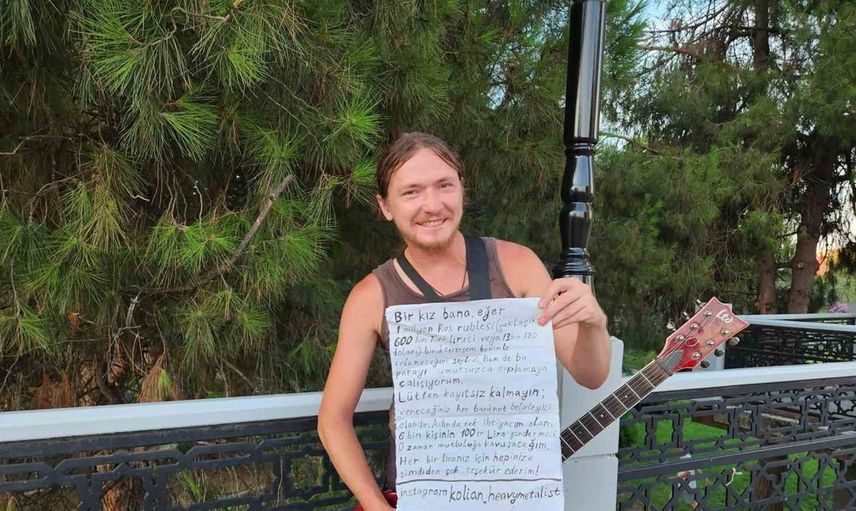 Bir kız bana, eğer
1 milyon Rus rublesi (yaklaşık
600 bin Türk lirası veya 13 bin ABD
doları) biriktirirsem benimle
evleneceğini söyledi. Ben de bu
parayı umutsuzca toplamaya
çalışıyorum.
Lütfen kayıtsız kalmayın;
vereceğiniz her banknot belirleyici
olabilir. Aslında tek ihtiyacım olan,
6 bin kişinin 100'er Lira göndermesi
O zaman mutluluğa kavuşacağım.
Her bir liranız için hepinize
şimdiden çok teşekür ederim!
instagram kolian_heavymetalist